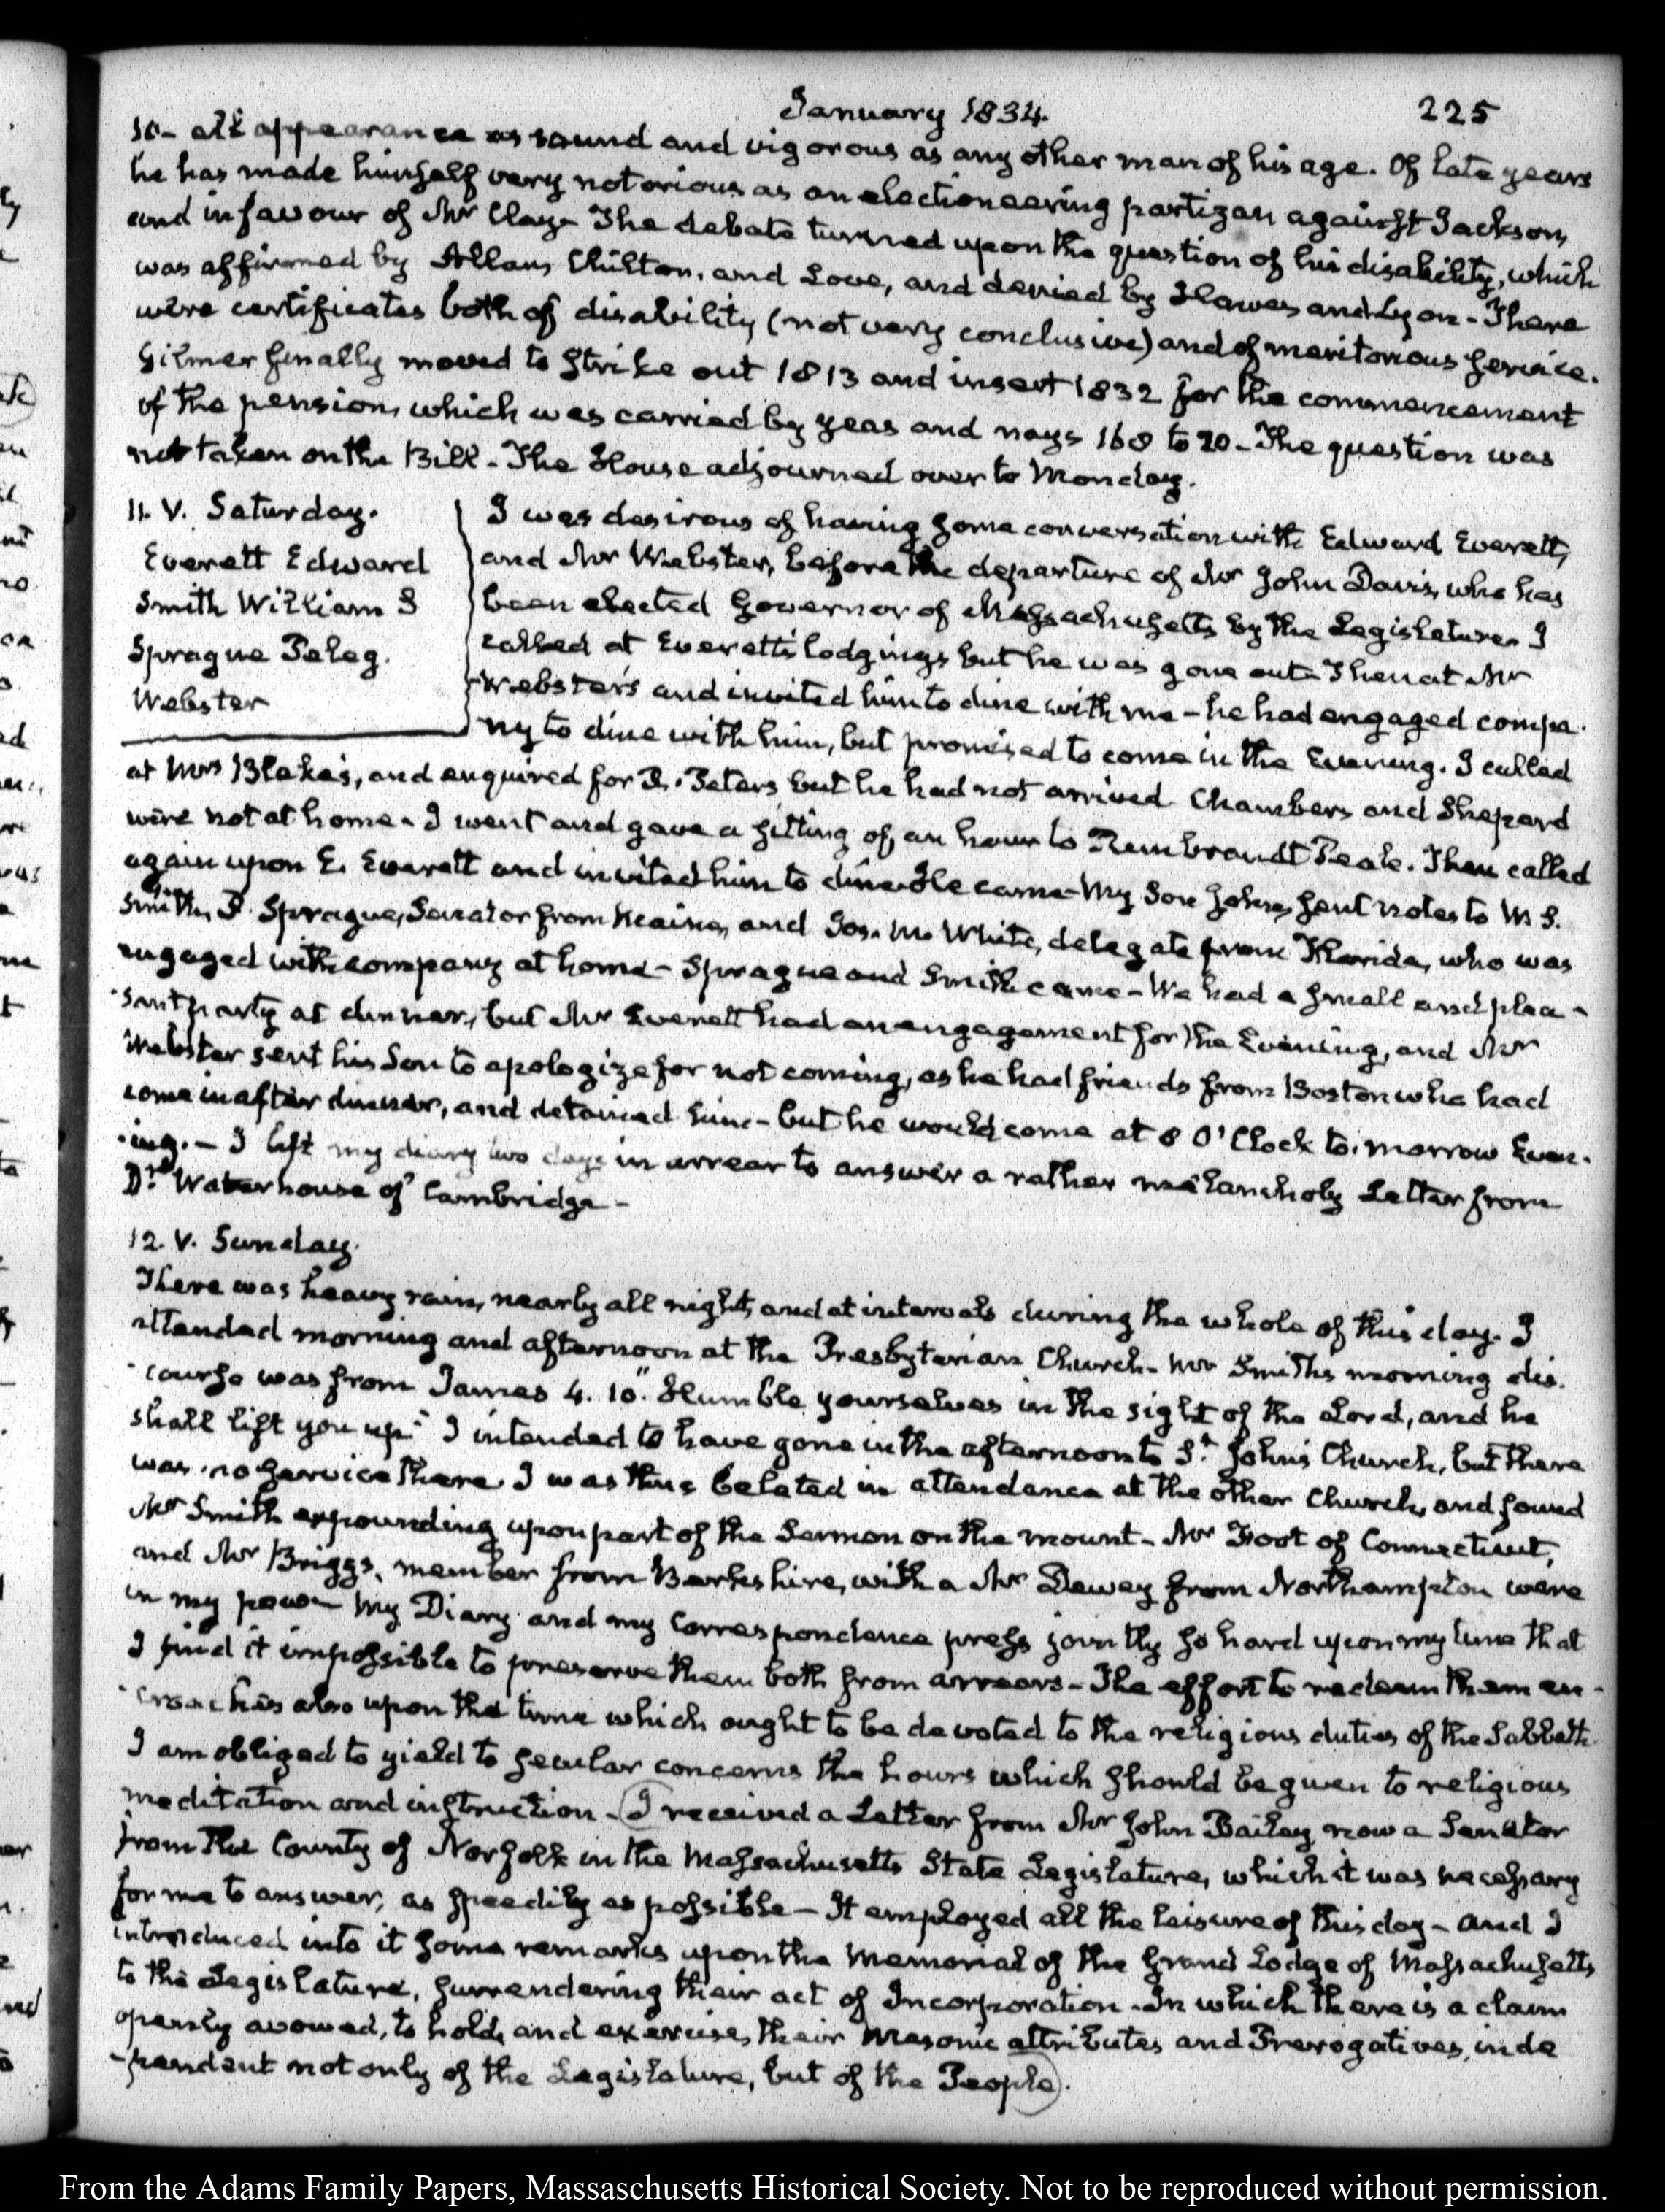 January 1834.
225
10- all appearance as sound and vigorous as any other man of his age. Of late years
he has made himself very notorious as an electioneering partizan against Jackson,
and in favour of Mr Clay- The debate turned upon the question of his disability, which
was affirmed by Allan, Chilton, and Love, and denied by Hawes and Lyon- There
were certificates both of disability (not very conclusive) and of meritorious service.
Gilmer finally moved to strike out 1813 and insert 1832 for the commencement
of the pension, which was carried by yeas and nays 168 to 20- The question was
not taken on the Bill- The House adjourned over to Monday.
11. V. Saturday.
Everett Edward
Smith William S
Sprague Peleg.
Webster
I was desirous of having some conversation with Edward Everett,
and Mr Webster, before the departure of Mr John Davis, who has
been elected Governor of Massachusetts by the Legislature. I
called at Everett's lodgings but he was gone out- Then at Mr
Webster's and invited him to dine with me- he had engaged compa-
ny to dine with him, but promised to come in the Evening. I called
at Mrs Blake's, and enquired for R. Peters but he had not arrived. Chambers and Shepard
were not at home. I went and gave a sitting of an hour to Rembrandt Peale. Then called
again upon E. Everett and invited him to dine. He came- My Son John, sent notes to W S.
Smith, P. Sprague, Senator from Maine, and Jos. M. White, delegate from Florida, who was
engaged with company at home- Sprague and Smith came- We had a small and plea-
-sant party at dinner, but Mr Everett had an engagement for the Evening, and Mr
Webster sent his Son to apologize for not coming, as he had friends from Boston who had
come in after dinner, and detained him- but he would come at 8 O'Clock to-morrow Even-
-ing.- I left my diary two days in arrear to answer a rather melancholy Letter from
Dr Waterhouse of Cambridge-
12. V. Sunday.
There was heavy rain, nearly all night, and at intervals during the whole of this day. I
attended morning and afternoon at the Presbyterian Church- Mr Smith's morning dis-
-course was from James 4. 10. "Humble yourselves in the sight of the Lord, and he
shall lift you up." I intended to have gone in the afternoon to St John's Church, but there
was no service there. I was thus belated in attendance at the other Church, and found
Mr Smith expounding upon part of the Sermon on the mount- Mr Foot of Connecticut,
and Mr Briggs, member from Berkshire, with a Mr Dewey from Northampton were
in my pew- My Diary and my Correspondence press jointly so hard upon my time that
I find it impossible to preserve them both from arrears- The effort to redeem them en-
-croaches also upon the time which ought to be devoted to the religious duties of the Sabbath.
I am obliged to yield to secular concerns the hours which should be given to religious
meditation and instruction- I received a Letter from Mr John Bailey now a Senator
from the County of Norfolk in the Massachusetts State Legislature, which it was necessary
for me to answer, as speedily as possible- It employed all the leisure of this day- and I
introduced into it some remarks upon the Memorial of the Grand Lodge of Massachusetts
to the Legislature, surrendering their act of Incorporation- In which there is a claim
openly avowed, to hold, and exercise, their Masonic attributes and Prerogatives, inde
-pendent not only of the Legislature, but of the People.
From the Adams Family Papers, Massachusetts Historical Society. Not to be reproduced without permission.